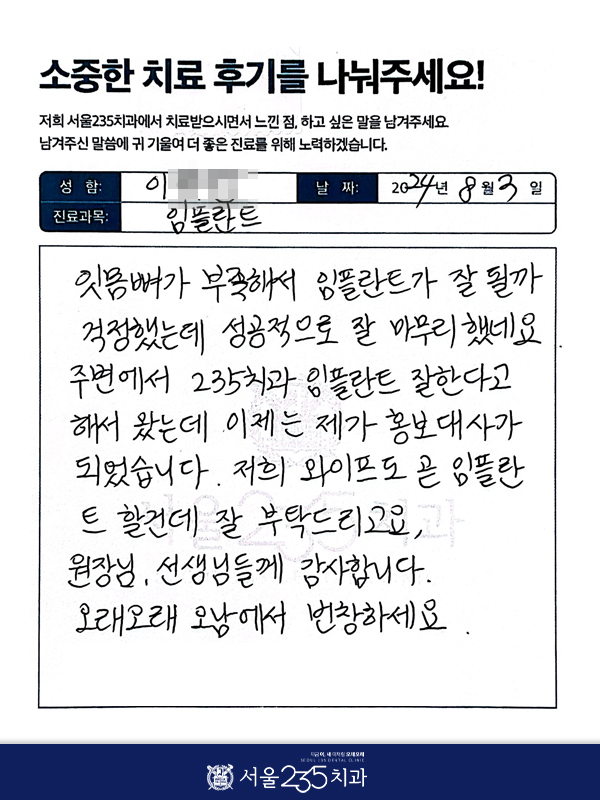 소중한 치료 후기를 나눠주세요!
저희 서울235치과에서 치료받으시면서 느낀 점, 하고 싶은 말을 남겨주세요
남겨주신 말씀에 귀 기울여 더 좋은 진료를 위해 노력하겠습니다.
성 함: 이 날 짜: 2024년 8월 3일
진료과목: 임플란트
잇몸뼈가 부족해서 임플란트가 잘 될까
걱정했는데 성공적으로 잘 마무리했네요.
주변에서 235치과 임플란트 잘한다고
해서 왔는데 이제는 제가 홍보대사가
되었습니다. 저희 와이프도 곧 임플란
트 할건데 잘 부탁드리고요,
원장님, 선생님들께 감사합니다.
오래오래 오남에서 번창하세요.
서울235치과
SEOUL 235 DENTAL CLINIC
서울235치과